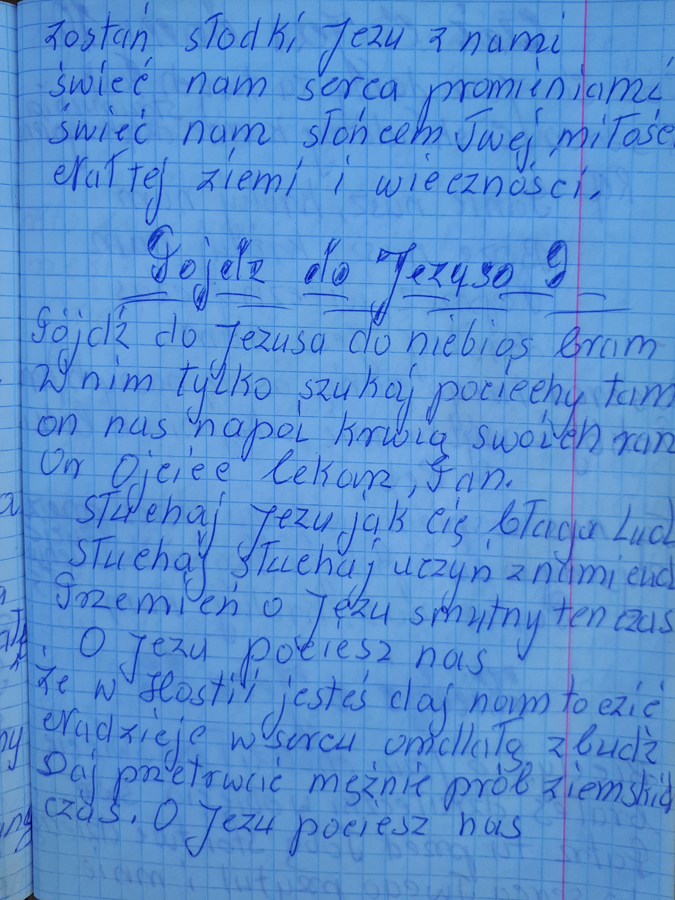 zostań słodki Jezu z nami
świeć nam serca promieniami
świeć nam słońcem Twej miłośc
Na tej ziemi i wieczności.
Pójdz do Jezusa 9
Pójdź do Jezusa do niebios bram
W nim tylko szukaj pociechy tam
on nas napoi krwią swoich ran
On Ojciec lekarz, Pan.
Słuchaj Jezu jak cię błaga Lud
Słuchaj słuchaj uczyń z nami cud
Przemień o Jezu smutny ten czas
O Jezu pociesz nas
Że w Hostii jesteś daj nam to czić
Nadzieje w sercu omdlałą zbudź
Daj przetrwać mężnie prób ziemskic
czas. O Jezu pociesz nas